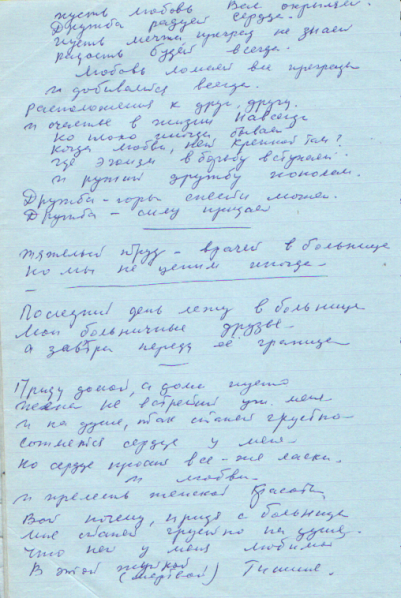 пусть любовь Вас окрыляет.
Дружба радует сердце.
Пусть мечта преград не знает
Радость будет всегда.
Любовь ломает все преграды
и добивается всегда.
Расположения к друг, другу.
и счастье в жизни навсегда
Но плохо иногда бывает
Когда любви, нет крепкой там?
где эгоизм в борьбу вступает.
и рушит дружбу
Дружба – горы снести может.
Дружба – силу придаёт
Тяжелый труд – врачей в больнице
Но мы не ценим иногда –
Последний день лежу в больнице
Мои больничные друзья –
а завтра перейду её границы
Приду домой, а дома пусто
жена не встретит уж меня
и на душе, так станет грустно –
сожмется сердце у меня
но сердце просит все – же ласки.
и любви.
и прелесть женской красоты,
Вот почему, придя с больницы
мне станет грустно на душе.
Что нет у меня любимой
В этой жуткой
(мертвой) Тишине.